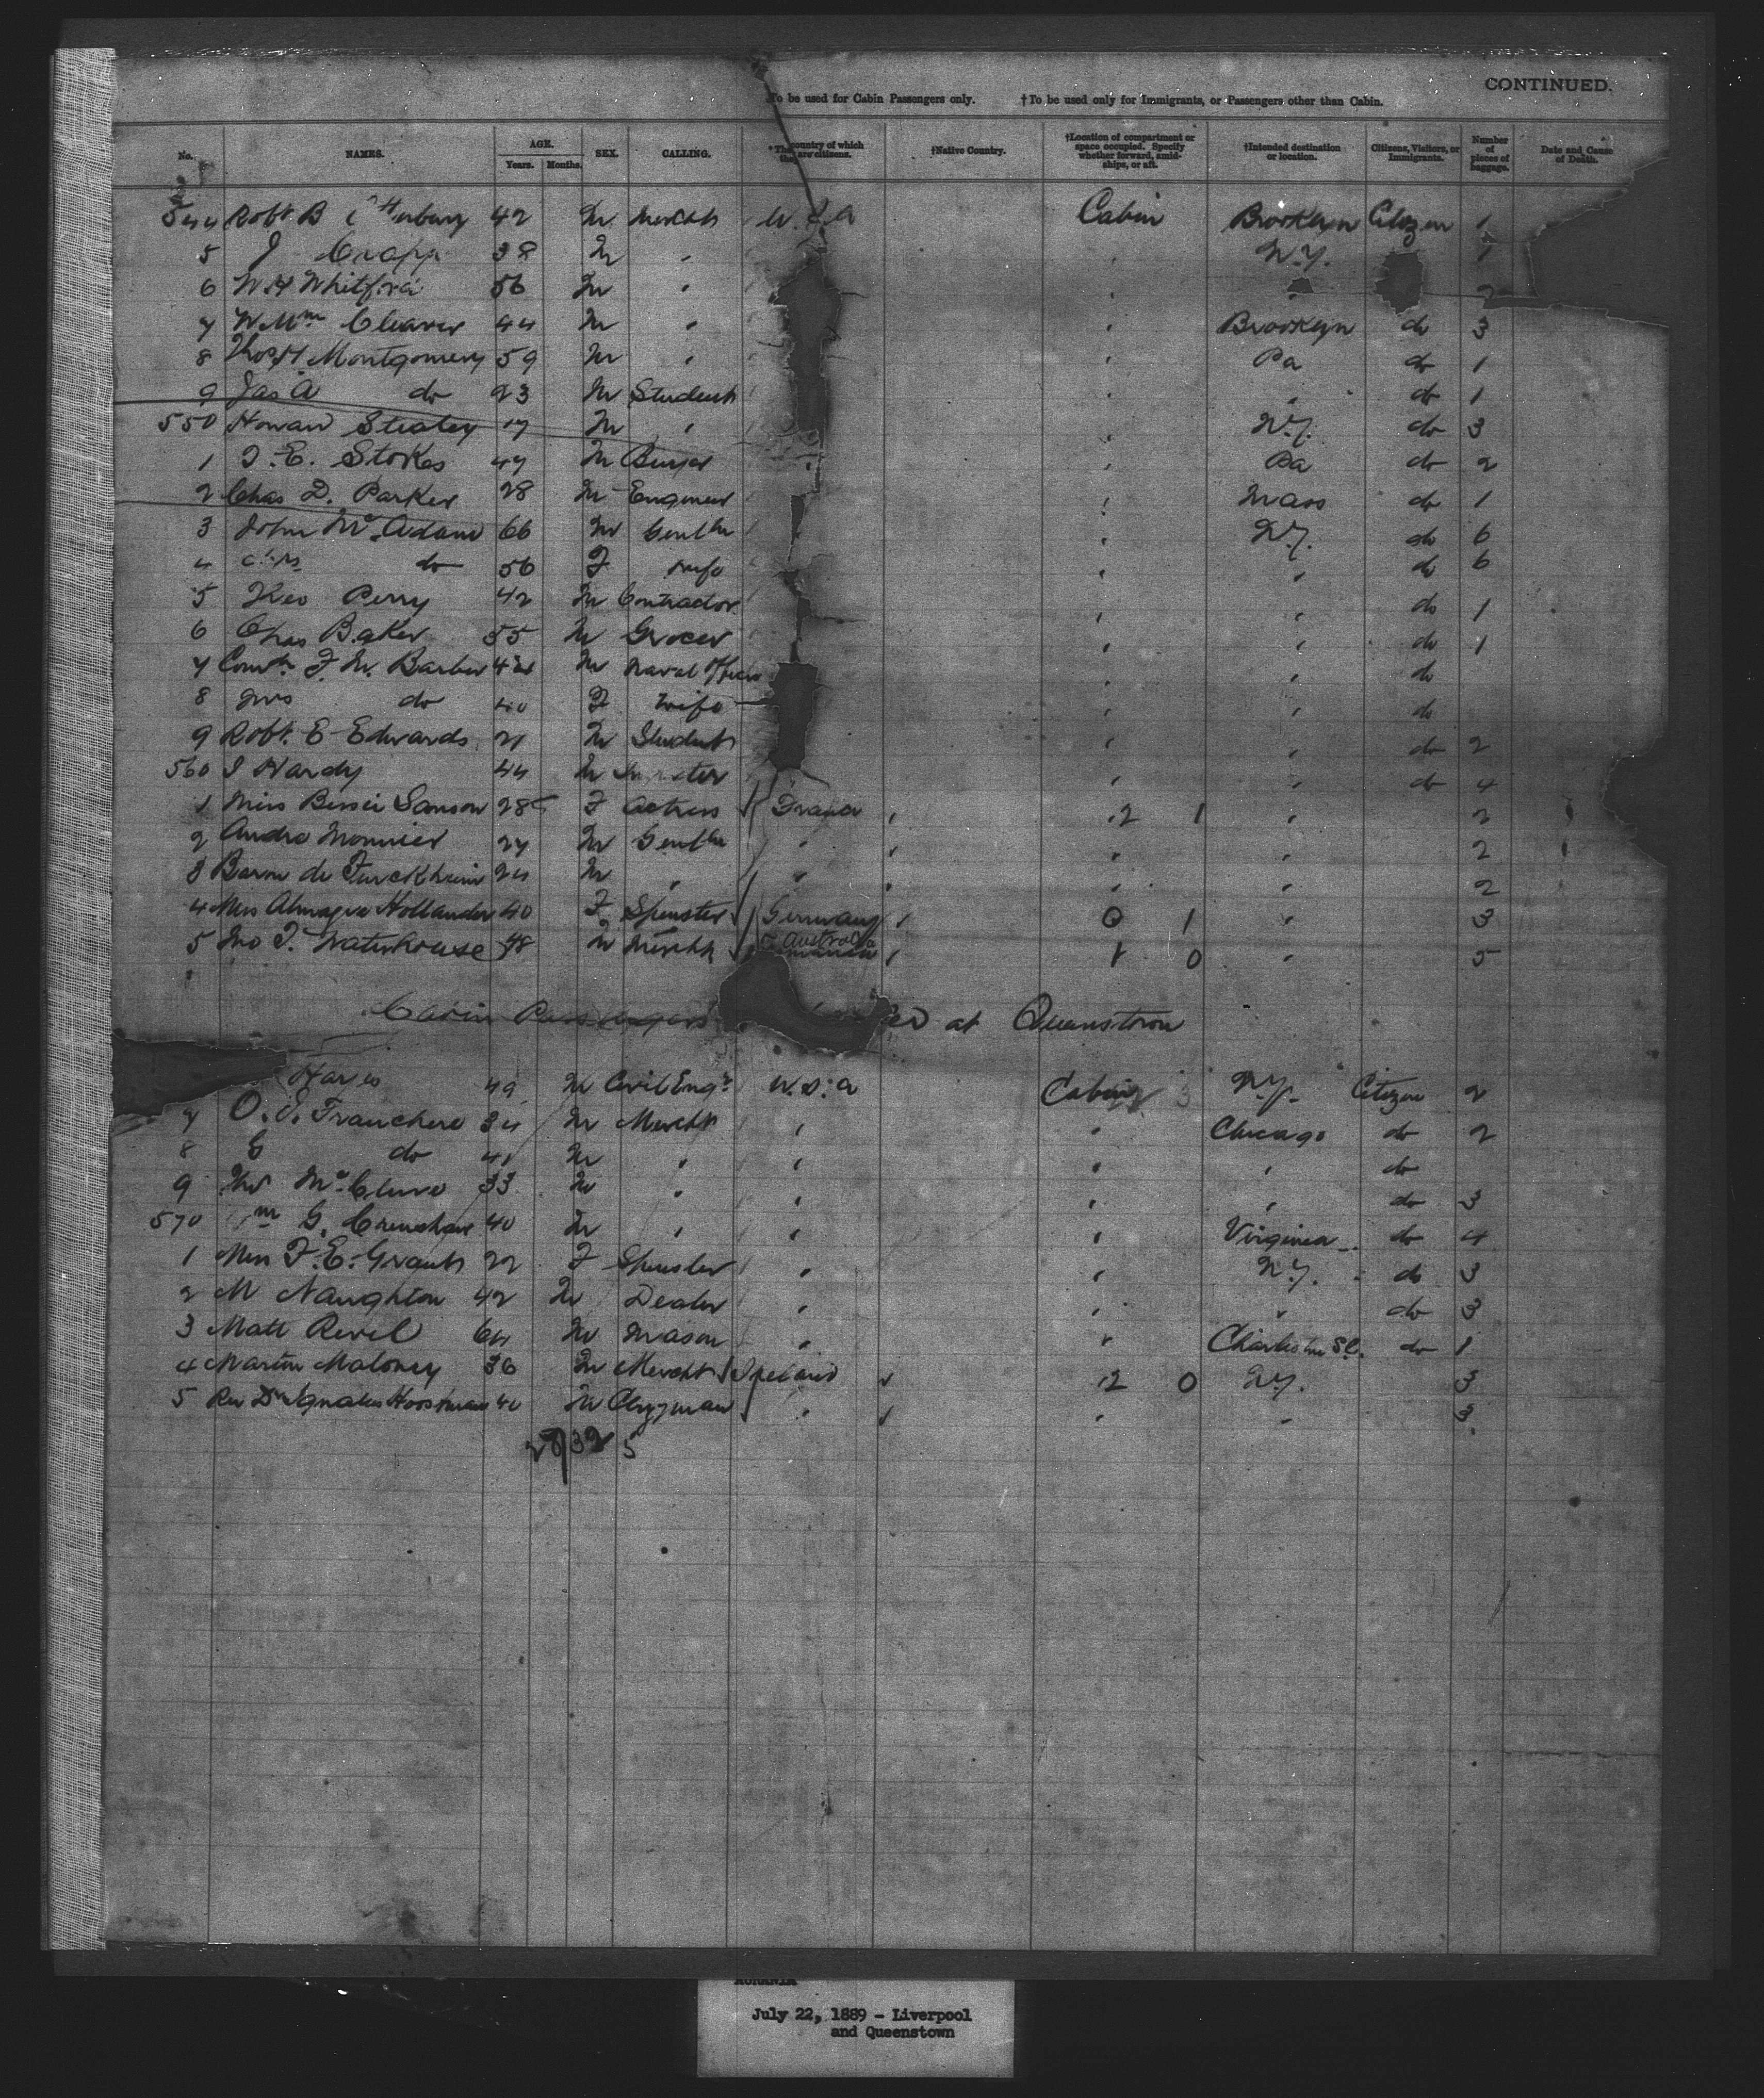 CONTINUED.
To be used for Cabin Passengers only. †To be used only for Immigrants, or Passengers other than Cabin.
No. NAMES. AGE. Years. Months. SEX. CALLING. *The country of which they are citizens. †Native Country. †Location of compartment or space occupied. Specify whether forward, amidships, or aft. †Intended destination or location. Citizens, Visitors, or Immigrants. Number of pieces of baggage. Date and Cause of Death.
544 Robt. B 42 M Mercht U.S.A Cabin Brooklyn Citizen 1
5 J Cropp 38 M " N.Y. 1
6 W.H Whitford 56 M " " 2
7 Wm Cleaver 44 M " " Brooklyn do 3
8 Thos H Montgomery 59 M " " Pa do 1
9 Jas A do 23 M Student " " do 1
550 Howard 17 M " " N.Y. do 3
1 T. E. Stokes 47 M Buyer " Pa do 2
2 Chas D. Parker 28 M Engineer " Mass do 1
3 John McAdam 66 M Gentln " N.Y. do 6
4 do 56 F Wife " " do 6
5 Geo Perry 42 M Contractor " " do 1
6 Chas Baker 55 M Grocer " " do 1
7 F. M. Barber M Naval Officer " " do
8 Mrs do 40 F Wife " " do
9 Robt. E Edwards 21 M Student " " do 2
560 J Hardy 44 M " " do 4
1 Miss Bessie Sanson 28 F Actress France 2 1 " 2
2 Andre Monnier 27 M Gentln " " " 2
3 Baron de Turckheim 24 M " " " " 2
4 Miss Hollander 40 F Spinster Germany 0 1 " 3
5 Jno T. Waterhouse 48 M Mercht Australia 1 0 " 5
Cabin Passengers at Queenstown
49 M Civil Engr U.S.A Cabin 3 N.Y. Citizen 2
7 O. S. Franchere 34 M Mercht " " Chicago do 2
8 E do M " " " " do
9 McClure 33 M " " " " do 3
570 G. Crenshaw 40 M " " " Virginia do 4
1 Miss F. E. Grant 22 F Spinster " " N.Y. do 3
2 M Naughton 42 M Dealer " " " do 3
3 Matt Revel 64 M Mason " " Charleston S.C. do 1
4 Martin Maloney 36 M Mercht Ireland 2 0 N.Y. 3
5 Rev Dr Ignatius 40 M Clergyman " " " 3
32 5
July 22, 1889 - Liverpool
and Queenstown